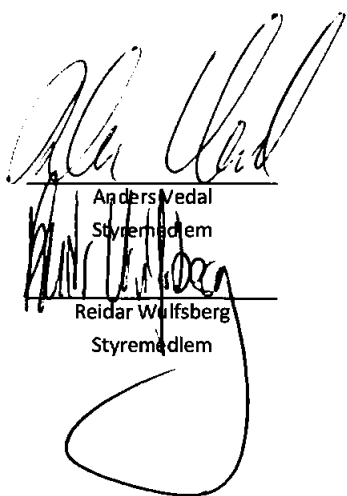 Anders Vedal
Styremedlem
Reidar Wulfsberg
Styremedlem